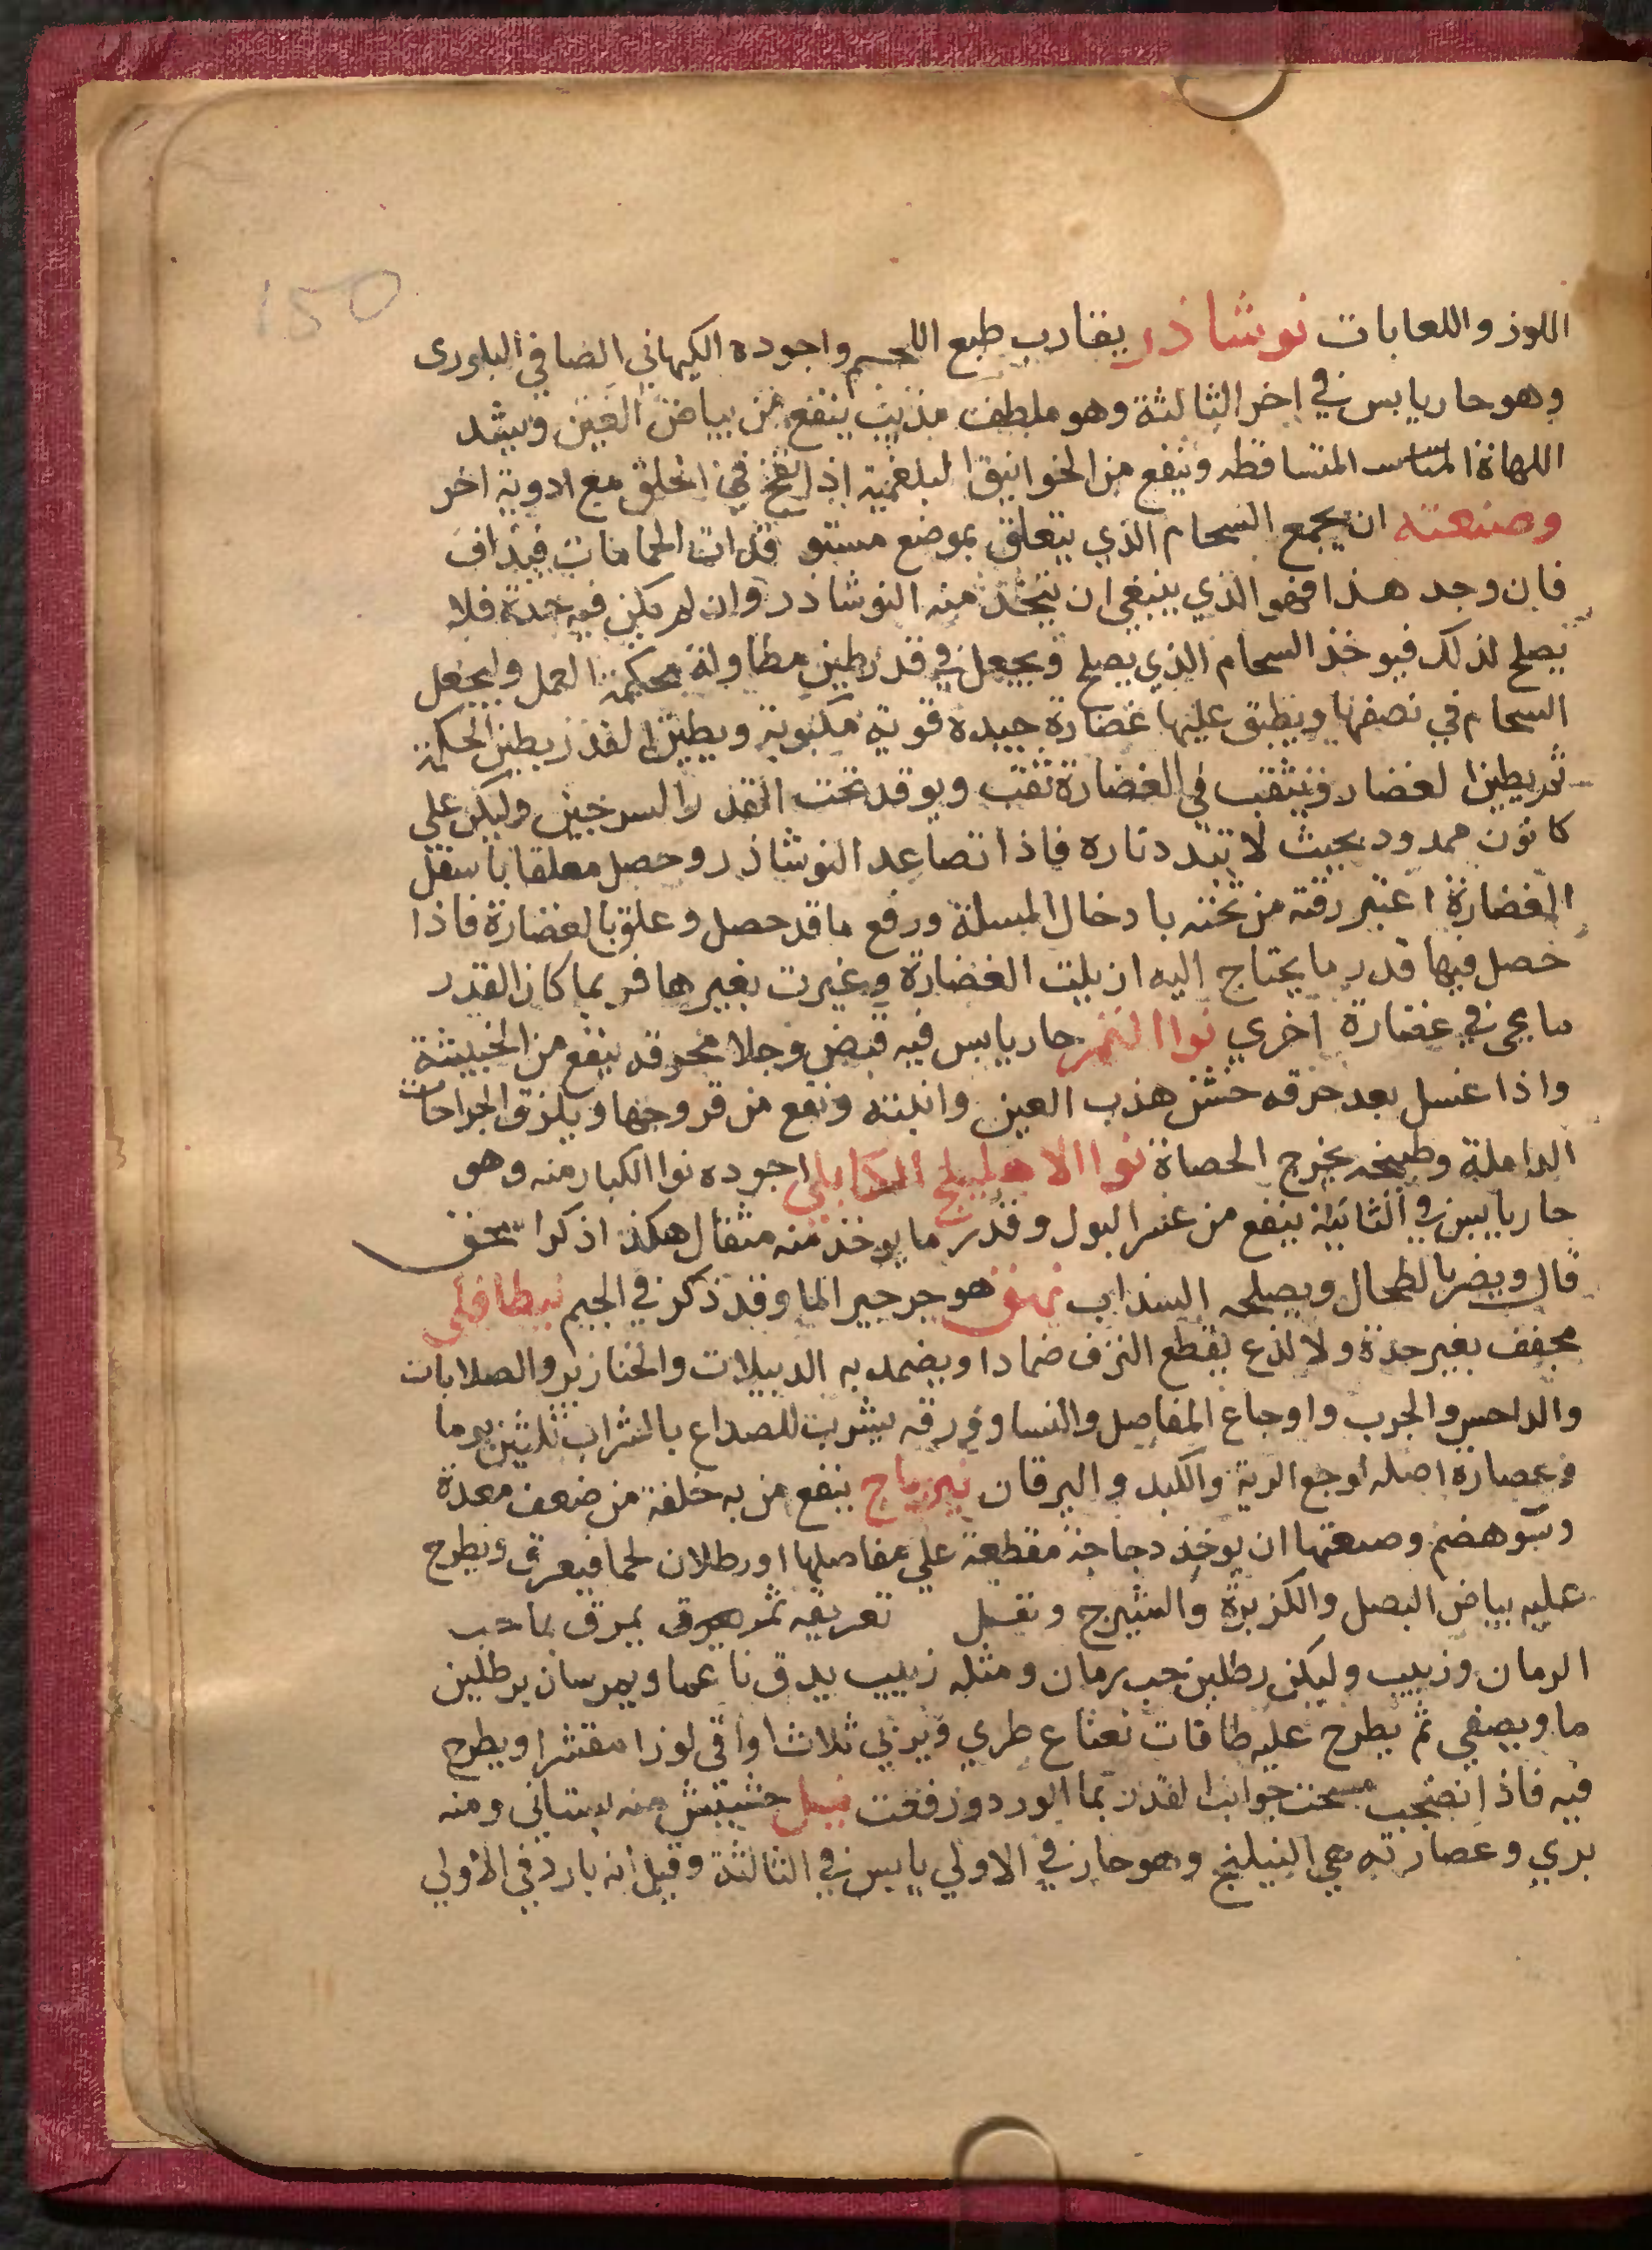 150
اللوز واللعابات نوشاذر يقارب طبع الل‍حم واجوده الكهاني الصافي البلوري
وهو حار يابس في اخر الثالثة وهو ملطف مذيب ينفع من بياض العين ويشد
اللهاة المتساقطه وينفع من الخوانيق البلغمية اذا نفخ في الحلق مع ادوية اخر
وصنعته ان يجمع السحام الذي يتعلق بموضع مستو قدات الحمامات فيذاف
فان وجد هذا فهو الذي ينبغي ان يتخذ منه النوشاذر وان لم يكن فيه حدة فلا
يصلح لذلك فيوخذ السحام الذي يصلح ويجعل في قدر طين مطاولة محكمة العمل وليجعل
السحام في نصفها ويطبق عليها غضارة جيده قوية مكبوبة ويطين القدر بطين الحكمة
ثم يطين الغضار ويثقب في الغضارة ثقب ويوقد تحت القدر بالسرجين وليكن علي
كانون ممدود بحيث لا تتبدد ناره فاذا تصاعد النوشاذر وحصل معلقا باسفل
الغضارة اعتبر رقته من تخنه بادخال المسلة ورفع ما قد حصل وعلق بالغضارة فاذا
حصل فيها قدر ما يحتاج اليه ازيلت الغضارة وغيرت بغيرها فربما كان القدر
ما يجي في غضارة اخري نوا التمر حار يابس فيه قبض وجلا محرقه ينفع من الخبيثة
واذا غسل بعد حرقه حسن هذب العين وانبته ونفع من قروحها ويلزق الجراحات
الداملة وطبيخه يخرج الحصاة نوا الاهليلج الكابلي اجوده نوا الكبار منه وهو
حار يابس في الثانية ينفع من عسر البول وقدر ما يوخذ منه مثقال هكذا ذكر اسحق
قال ويضر بالطحال ويصلحه السذاب نهق هو جرجير الما وقد ذكر في الجيم نيطافلي
مجفف بغير حدة ولا لذع يقطع النزف ضمادا ويضمد به الدبيلات والخنازير والصلابات
والداحس والجرب واوجاع المفاصل والنسا وورقه يشرب للصداع بالشراب ثلثين يوما
وعصارة اصله لوجع الرية والكبد واليرقان نيرباج ينفع من به خلفة من ضعف معدة
وسو هضم وصنعتها ان يوخذ دجاجة مقطعة علي مفاصلها او رطلان لحما فيعرق ويطرح
عليه بياض البصل والكزبرة والشيرج تعريقه ثم يمرق بما حب
الرمان وزبيب وليكن رطلين حب رمان ومثله زبيب يدق ناعما ويمرسان برطلين
ما ويصفي ثم يطرح عليه طاقات نعناع طري ويربي ثلاث اواقي لوزا مقشرا ويطرح
فيه فاذا نضجت مسحت جوانب القدر بما الورد ورفعت نيل حشيش منه بستاني ومنه
بري وعصارته هي النيلنج وهو حار في الاولي يابس في الثالثة وقيل انه بارد في الاولي